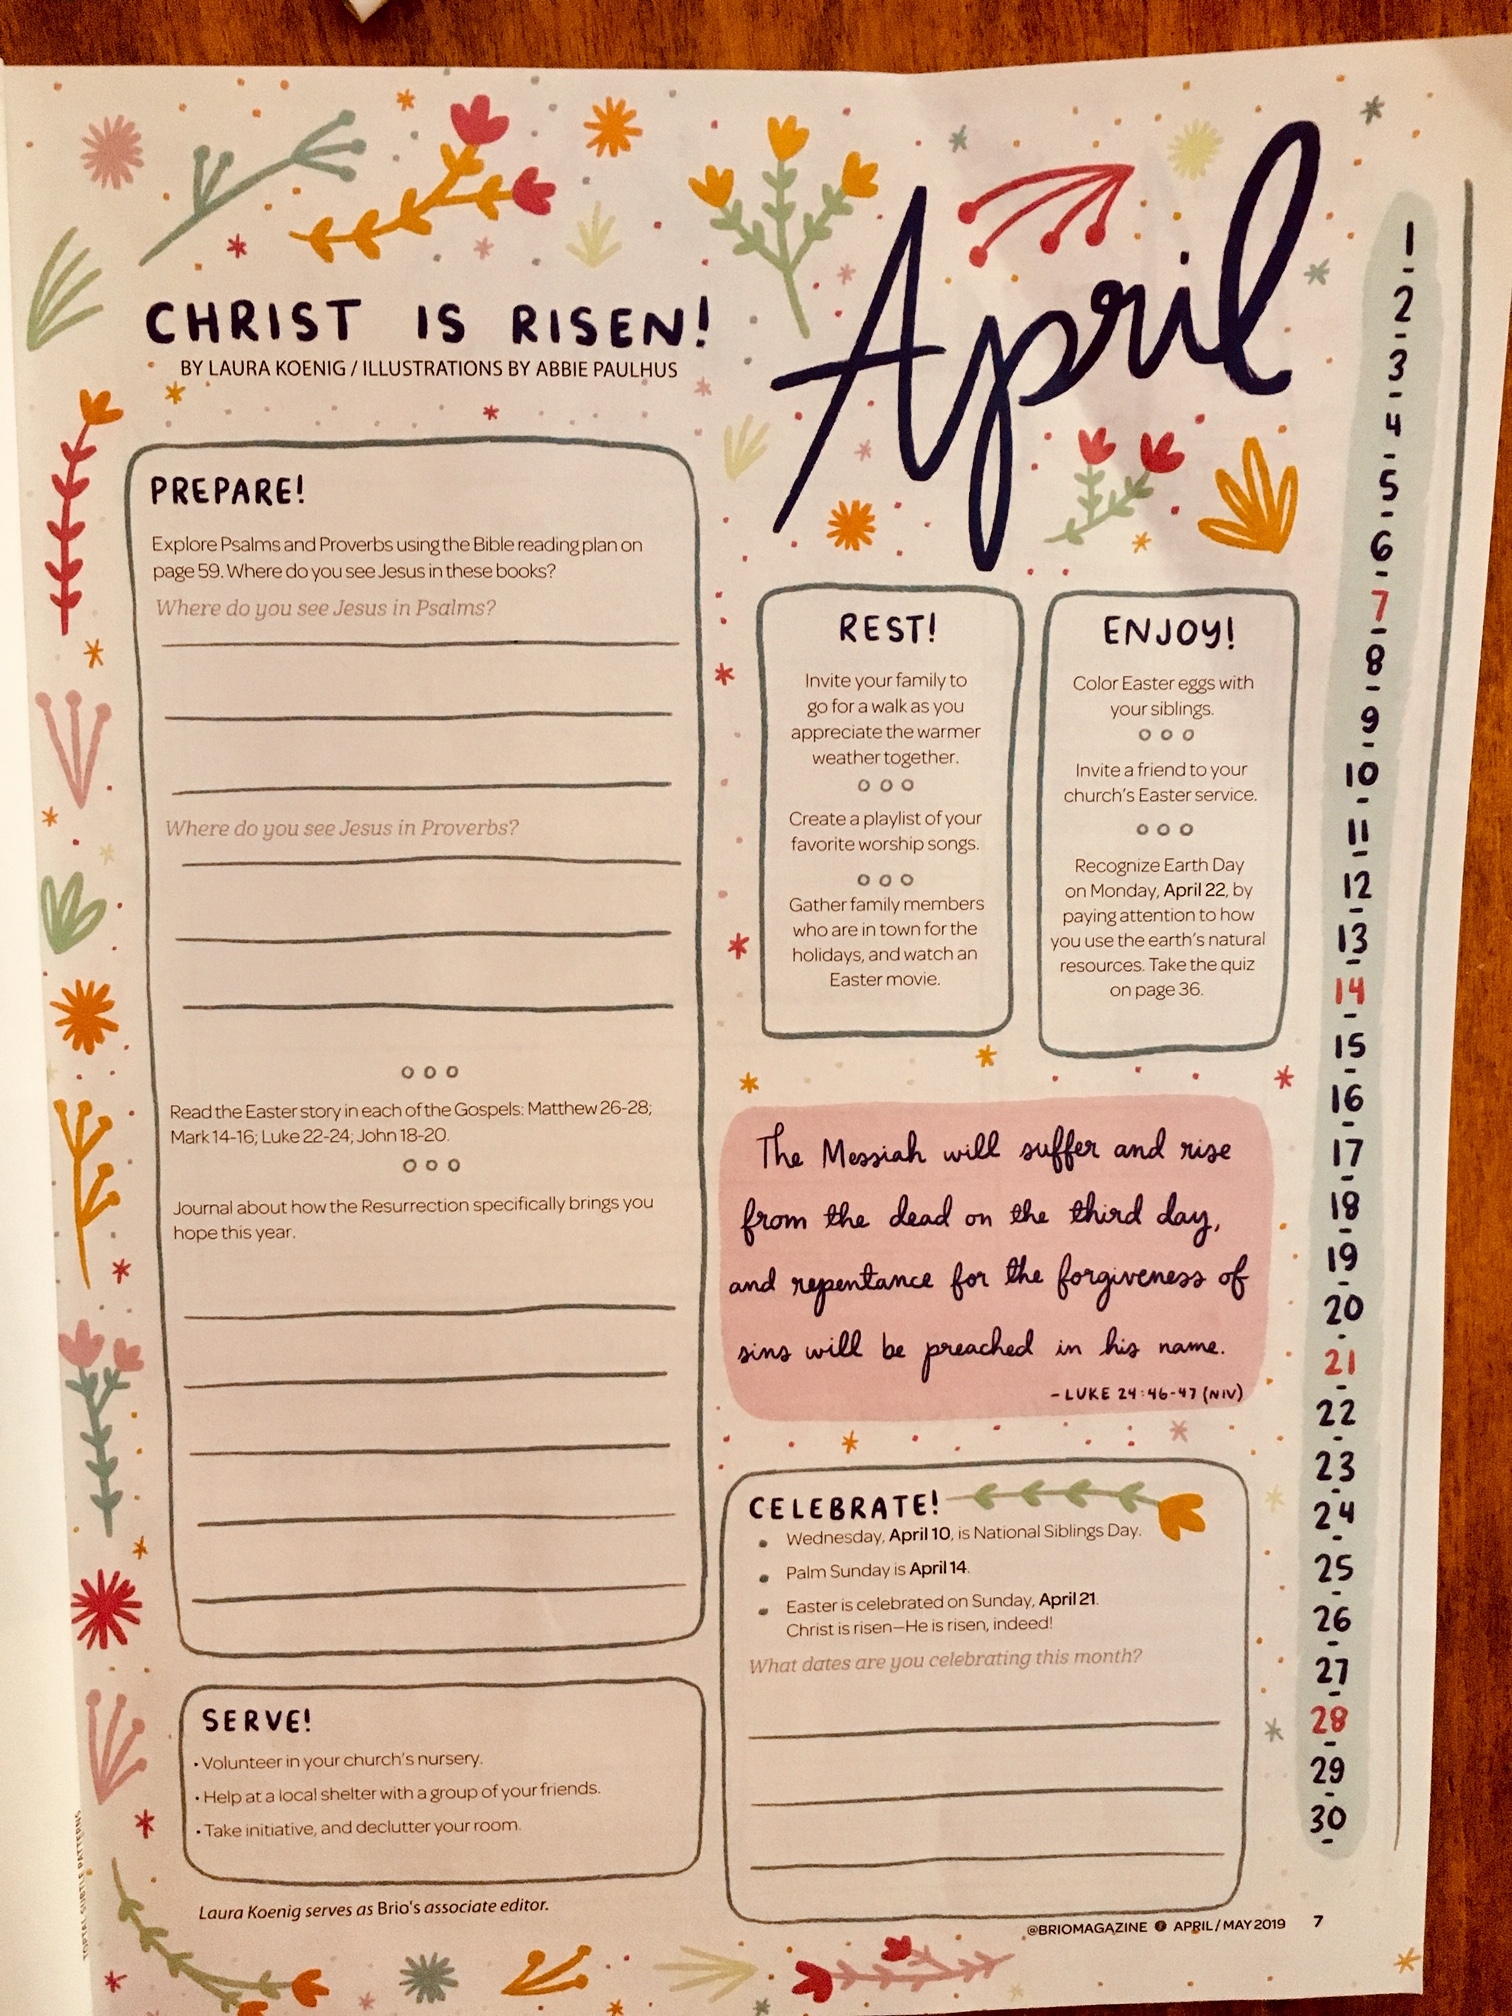 April
CHRIST IS RISEN!
BY LAURA KOENIG / ILLUSTRATIONS BY ABBIE PAULHUS
PREPARE!
Explore Psalms and Proverbs using the Bible reading plan on
page 59. Where do you see Jesus in these books?
Where do you see Jesus in Psalms?
Where do you see Jesus in Proverbs?
Read the Easter story in each of the Gospels: Matthew 26-28;
Mark 14-16; Luke 22-24; John 18-20.
Journal about how the Resurrection specifically brings you
hope this year.
SERVE!
• Volunteer in your church's nursery.
• Help at a local shelter with a group of your friends.
• Take initiative, and declutter your room.
Laura Koenig serves as Brio's associate editor.
REST!
Invite your family to
go for a walk as you
appreciate the warmer
weather together.
Create a playlist of your
favorite worship songs.
Gather family members
who are in town for the
holidays, and watch an
Easter movie.
ENJOY!
Color Easter eggs with
your siblings.
Invite a friend to your
church's Easter service.
Recognize Earth Day
on Monday, April 22, by
paying attention to how
you use the earth's natural
resources. Take the quiz
on page 36.
The Messiah will suffer and rise
from the dead on the third day,
and repentance for the forgiveness of
sins will be preached in his name.
- LUKE 24:46-47 (NIV)
CELEBRATE!
• Wednesday, April 10, is National Siblings Day.
• Palm Sunday is April 14.
• Easter is celebrated on Sunday, April 21.
Christ is risen—He is risen, indeed!
What dates are you celebrating this month?
1
2
3
4
5
6
7
8
9
10
11
12
13
14
15
16
17
18
19
20
21
22
23
24
25
26
27
28
29
30
@BRIOMAGAZINE APRIL / MAY 2019 7